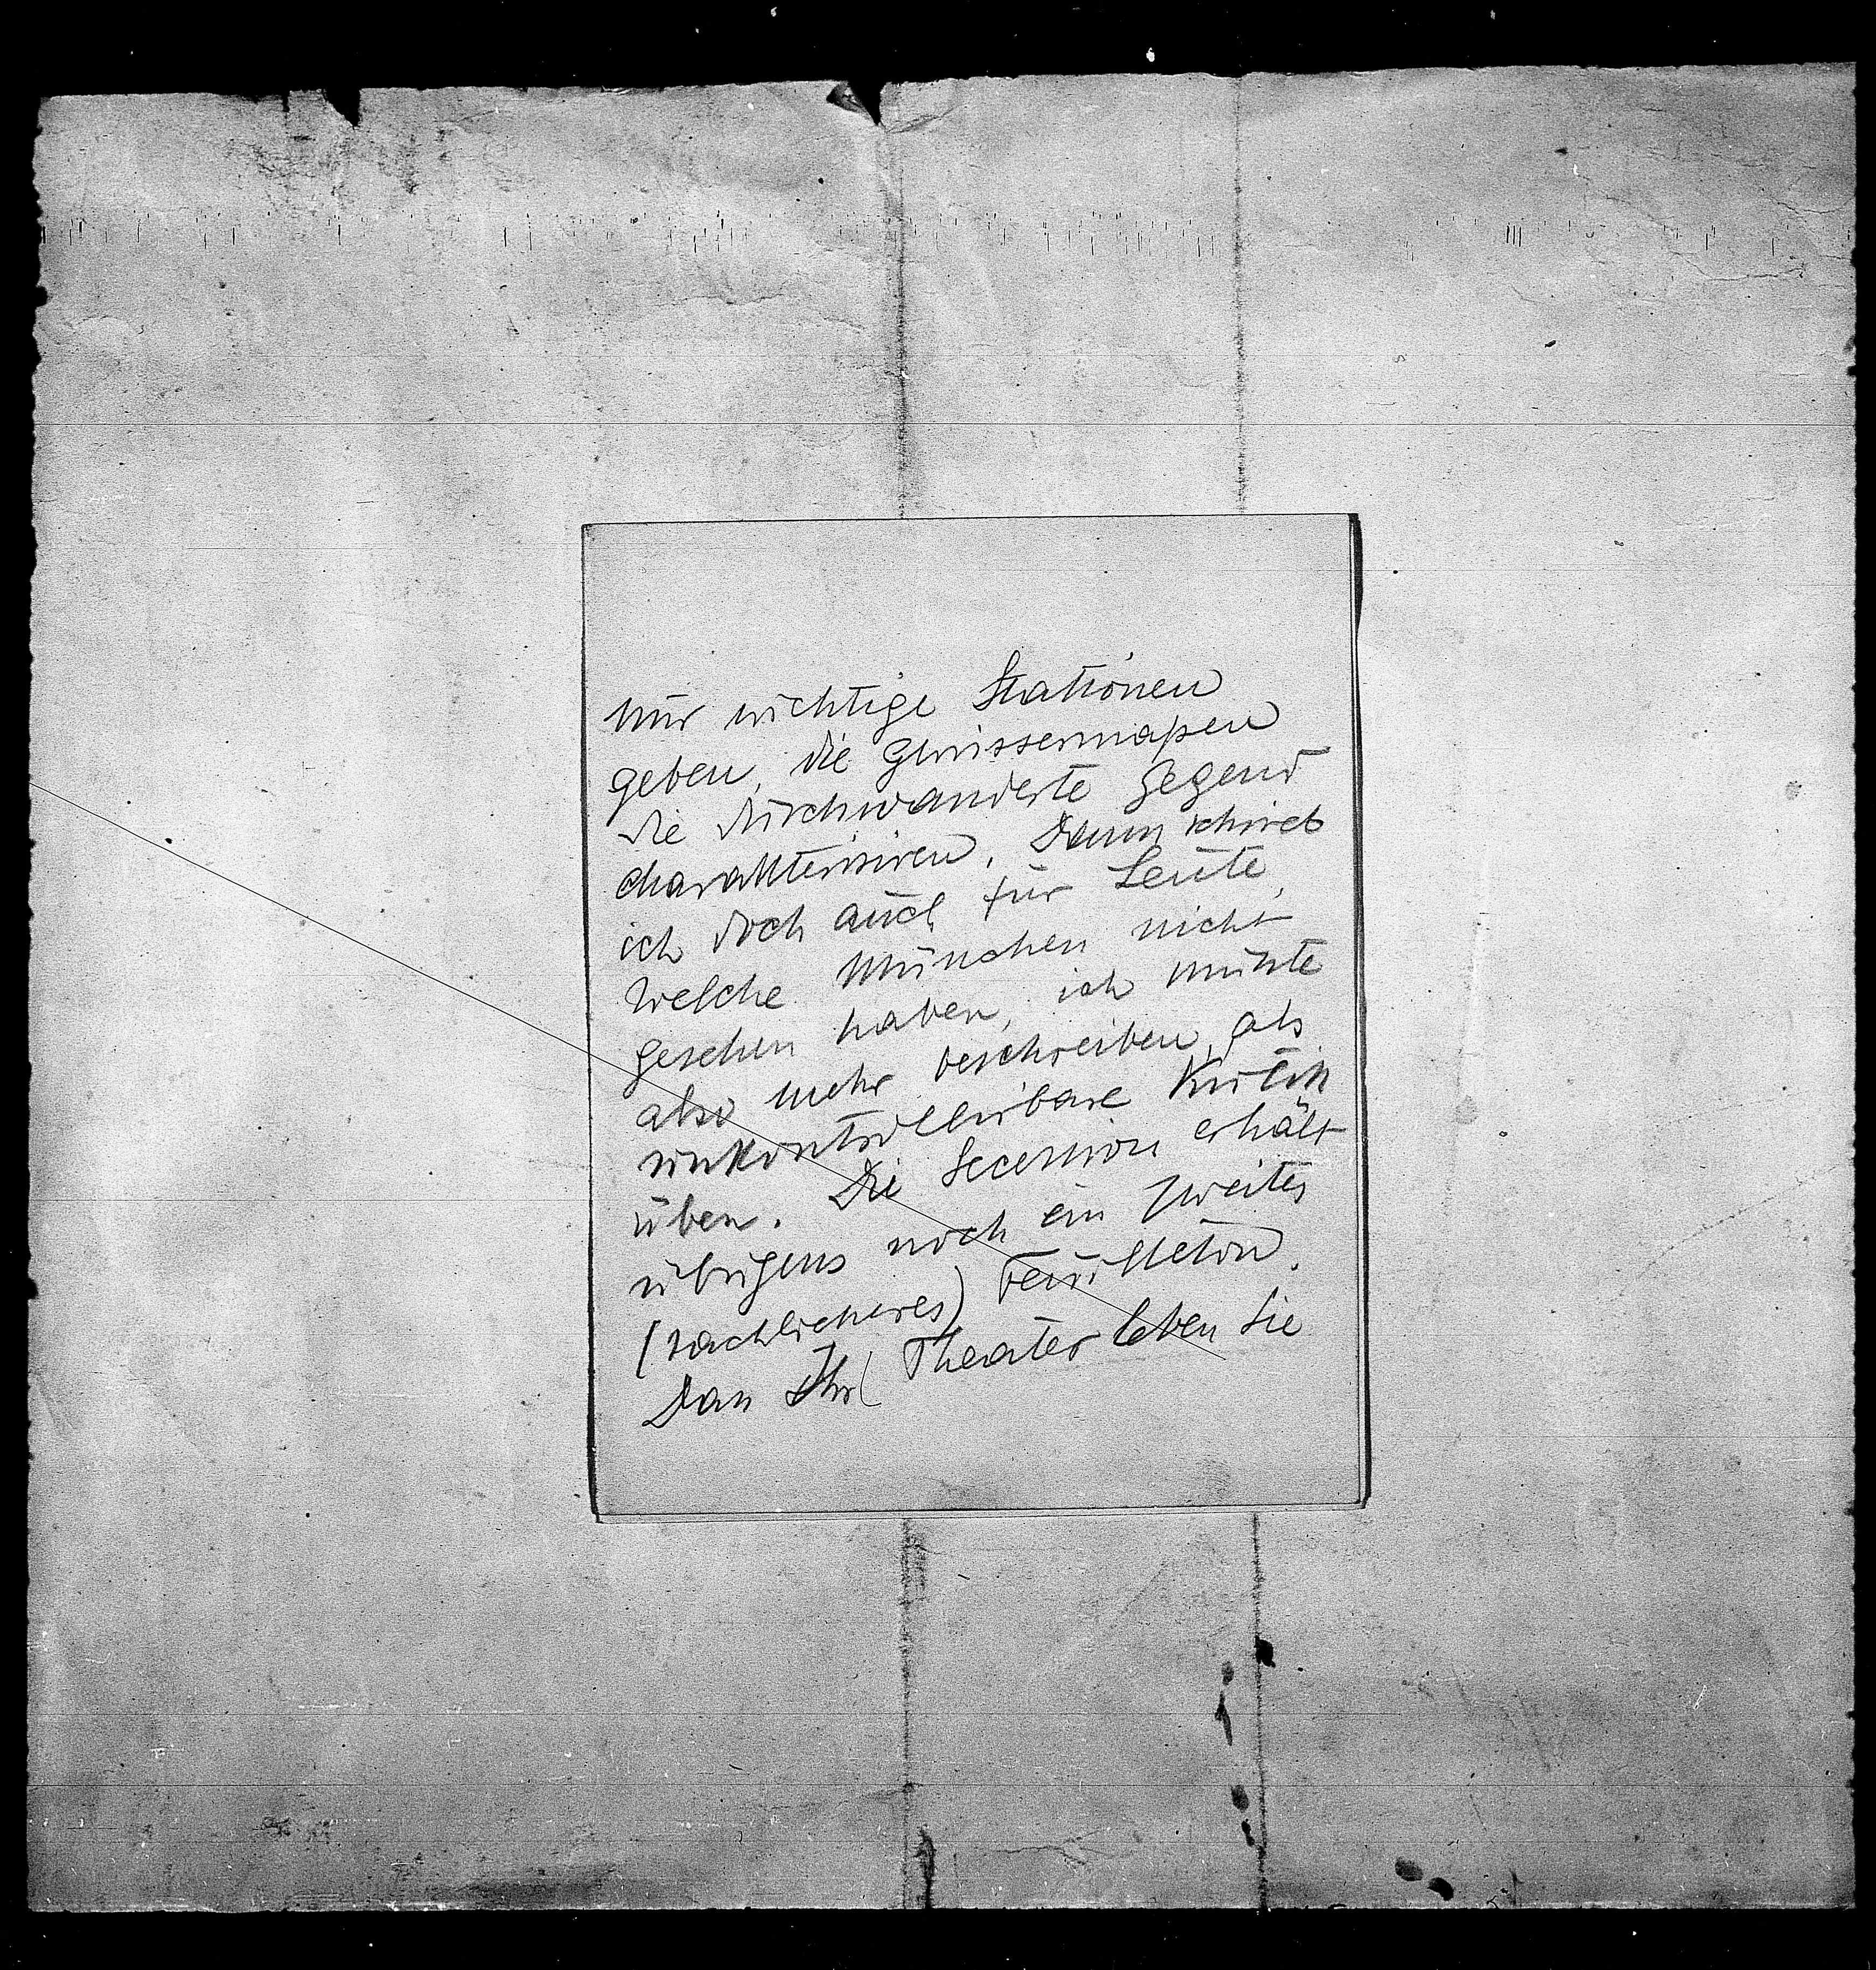 nur wichtige Stationen
geben, die gewissermaßen
die durchwanderte Gegend
charakterisiren. Denn schrieb
ich doch auch für Leute,
welche München nicht
gesehen haben, ich mußte
also mehr beschreiben, als
unkontrollirbare Kritik
üben. Die Secession erhält
übrigens noch ein zweites
(sachlicheres) Feuilleton.
Dass Ihr Theaterleben Sie